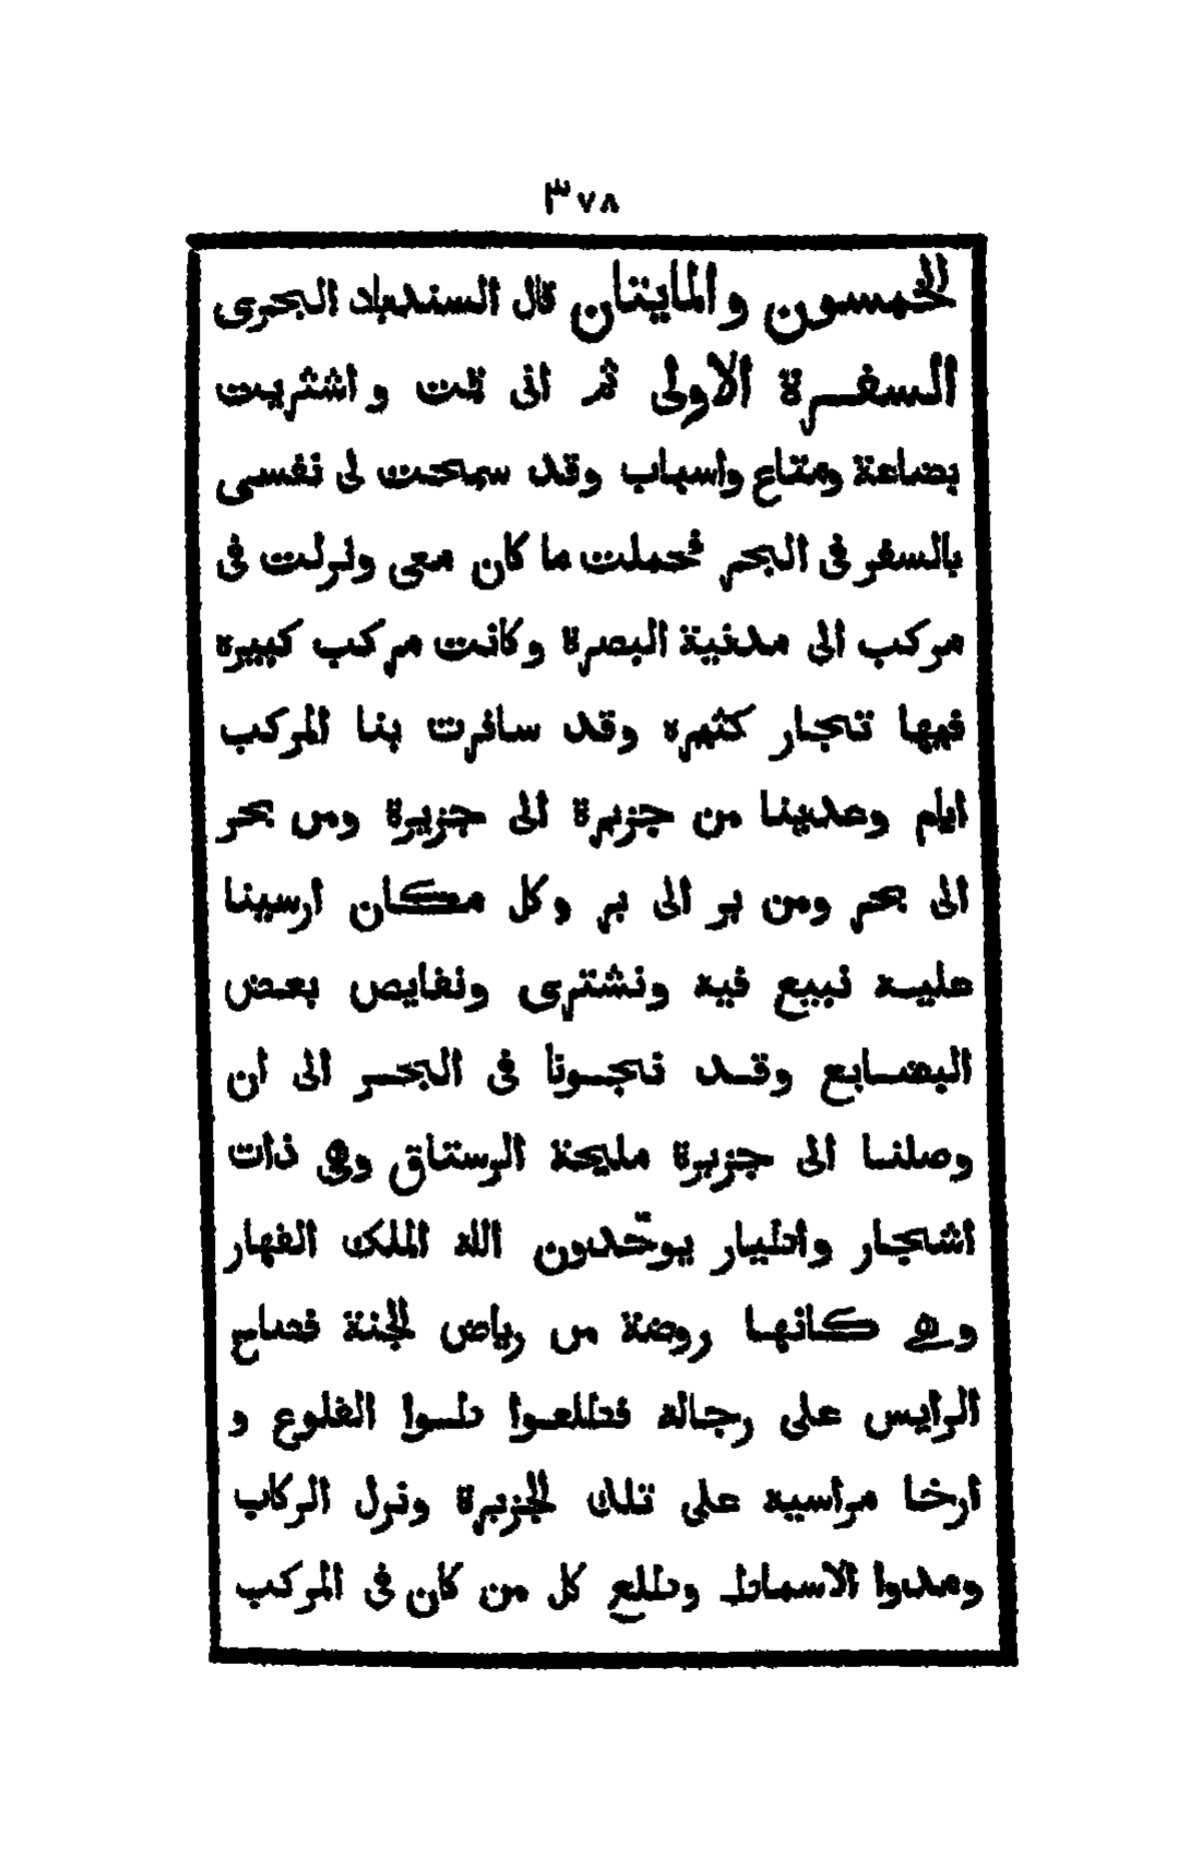 ٣٧٨
الخمسون والمايتان قال السندباد البحرى
السفرة الاولى ثم انى قمت واشتريت
بضاعة ومتاع واسباب وقد سمحت لى نفسى
بالسفر فى البحر فحملت ما كان معى ونزلت فى
مركب الى مدنية البصرة وكانت مركب كبيره
فيها تجار كثيره وقد سافرت بنا المركب
ايام وعدينا من جزيرة الى جزيرة ومن بحر
الى بحر ومن بر الى بر وكل مكان ارسينا
عليه نبيع فيه ونشترى ونقايص بعض
البضايع وقد تجونا فى البحر الى ان
وصلنا الى جزيرة مليحة الرستاق وهى ذات
اشجار واطيار يوحّدون الله الملك القهار
وهى كانها روضة من رياض الجنة فصاح
الرايس على رجاله فطلعوا طسوا القلوع و
ارخا مراسيه على تلك الجزيرة ونزل الركاب
ومدوا الاسماط وطلع كل من كان فى المركب